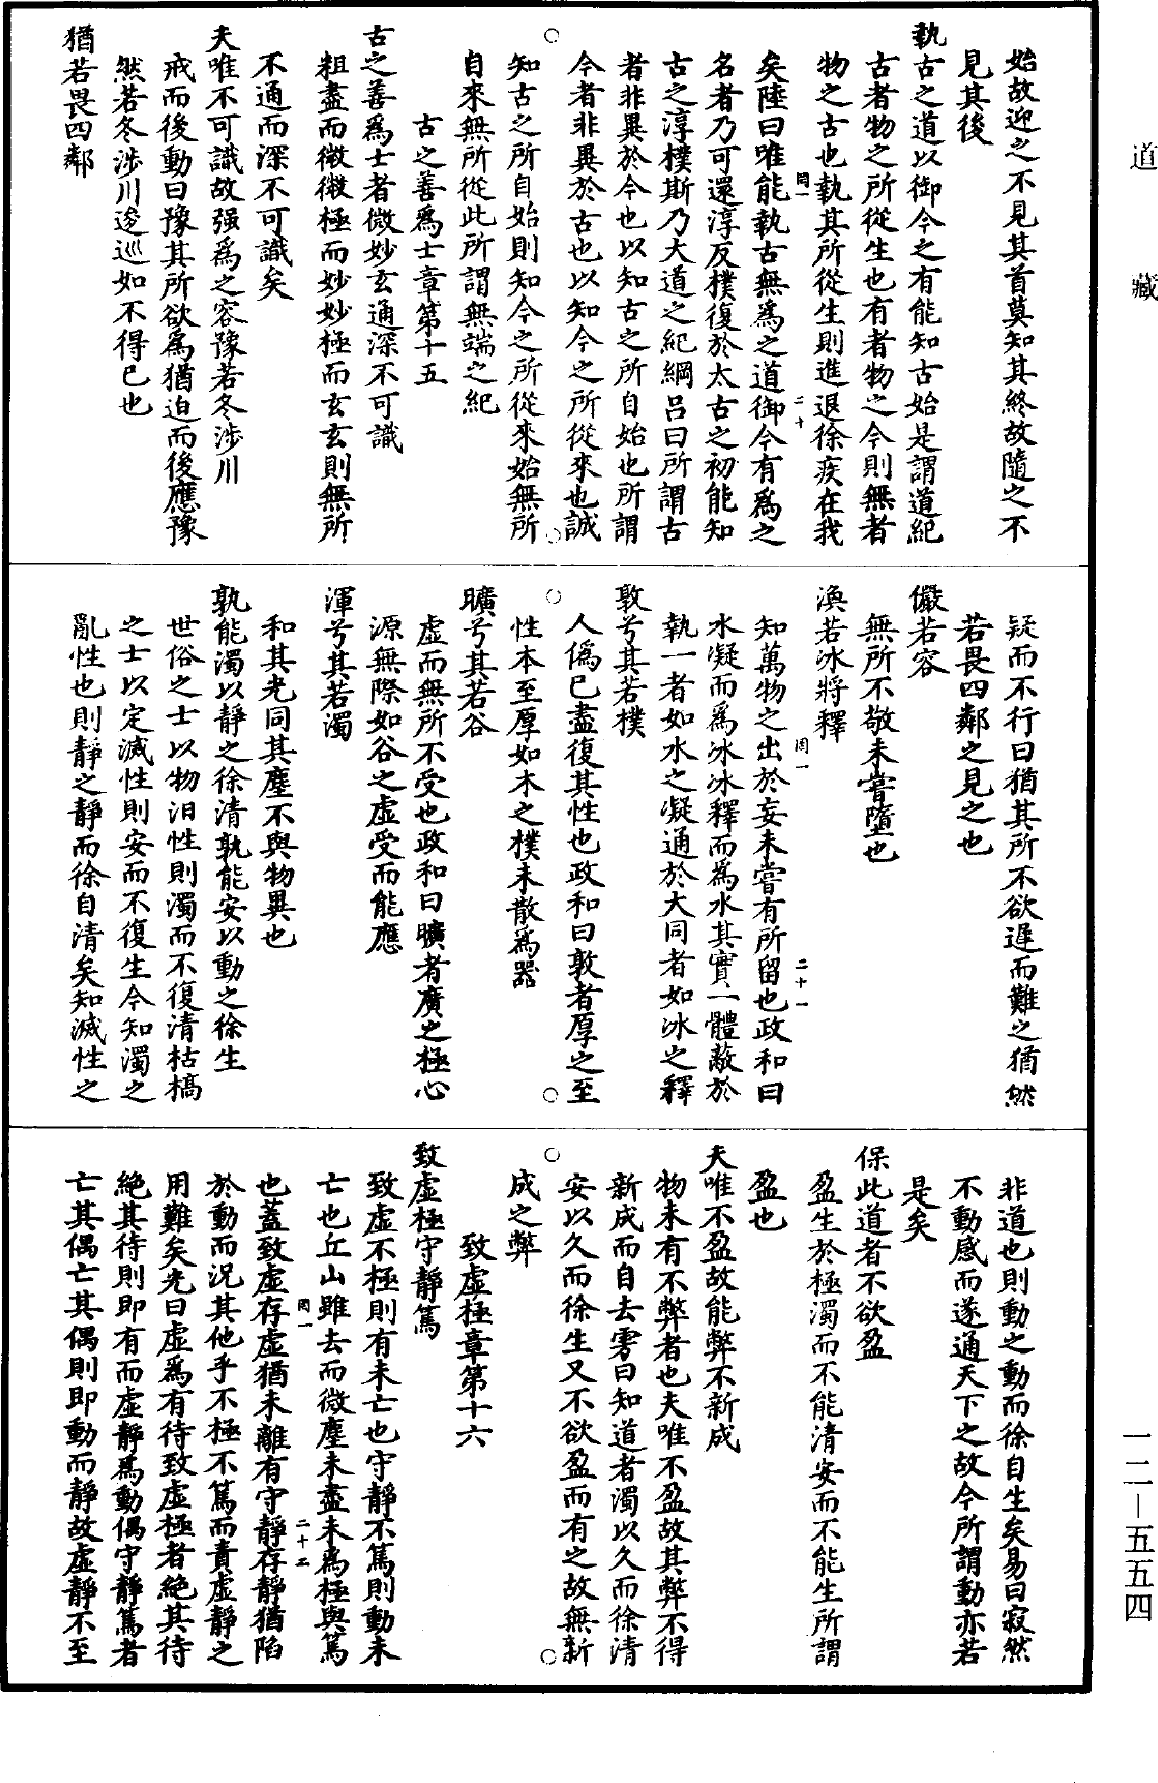 道藏
始故迎之不見其首莫知其終故隨之不
見其後
執古之道以御今之有能知古始是謂道紀
古者物之所從生也有者物之今則無者
物之古也執其所從生則進退徐疾在我
矣陸曰唯能執古無為之道御今有為之
罔一
二十
名者乃可還淳反樸復於太古之初能知
古之淳樸斯乃大道之紀綱呂曰所謂古
者非異於今也以知古之所自始也所謂
今者非異於古也以知今之所從來也誠
知古之所自始則知今之所從來始無所
自來無所從此所謂無端之紀
古之善為士章第十五
古之善為士者微妙玄通深不可識
粗盡而微微極而妙妙極而玄玄則無所
不通而深不可識矣
夫唯不可識故强為之容豫若冬涉川
戒而後動曰豫其所欲為猶迫而後應豫
然若冬涉川逡巡如不得已也
猶若畏四鄰
疑而不行曰猶其所不欲遲而難之猶然
若畏四鄰之見之也
儼若容
無所不敬未嘗墮也
渙若冰將釋
罔一
二十一
知萬物之出於妄未嘗有所留也政和曰
水凝而為冰冰釋而為水其實一體蔽於
執一者如水之凝通於大同者如冰之釋
敦兮其若樸
人偽已盡復其性也政和曰敦者厚之至
性本至厚如木之樸未散為器
曠兮其若谷
虛而無所不受也政和曰曠者廣之極心
源無際如谷之虛受而能應
渾兮其若濁
和其光同其塵不與物異也
孰能濁以靜之徐清孰能安以動之徐生
世俗之士以物汩性則濁而不復清枯槁
之士以定滅性則安而不復生今知濁之
亂性也則靜之靜而徐自清矣知滅性之
非道也則動之動而徐自生矣易曰寂然
不動感而遂通天下之故今所謂動亦若
是矣
保此道者不欲盈
盈生於極濁而不能清安而不能生所謂
盈也
夫唯不盈故能弊不新成
物未有不弊者也夫唯不盈故其弊不得
新成而自去雱曰知道者濁以久而徐清
安以久而徐生又不欲盈而有之故無新
成之弊
致虛極章第十六
致虛極守靜篤
致虛不極則有未亡也守靜不篤則動未
亡也丘山雖去而微塵未盡未為極與篤
罔一
二十二
也蓋致虛存虛猶未離有守靜存靜猶陷
於動而況其他乎不極不篤而責虛靜之
用難矣光曰虛為有待致虛極者絕其待
絕其待則即有而虛靜為動偶守靜篤者
亡其偶亡其偶則即動而靜故虛靜不至
一二—五五四